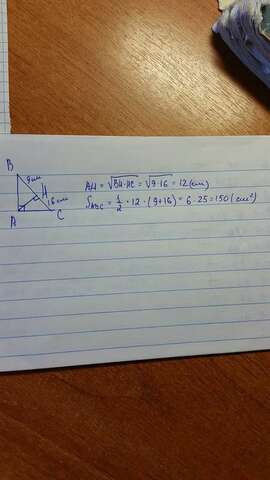 B
9 см
H
16 см
A
C
AH = √BH·HC = √9·16 = 12 (см)
S_ABC = 1/2 · 12 · (9+16) = 6 · 25 = 150 (см²)